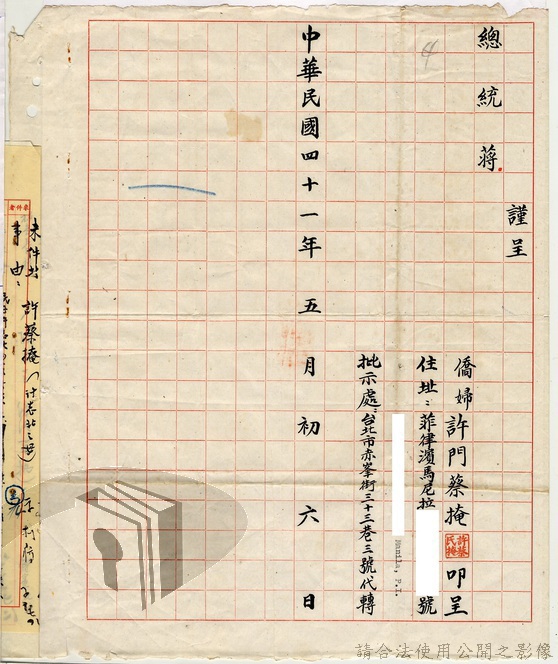 謹呈
總統 蔣
僑婦 許門蔡掩 叩呈
住址：菲律濱馬尼拉 號
Manila, P.I.
批示處：台北市赤峯街三十三巷三號代轉
中華民國四十一年 五 月初 六 日
4
來件者
許蔡掩
事由：
請合法使用公開之影像